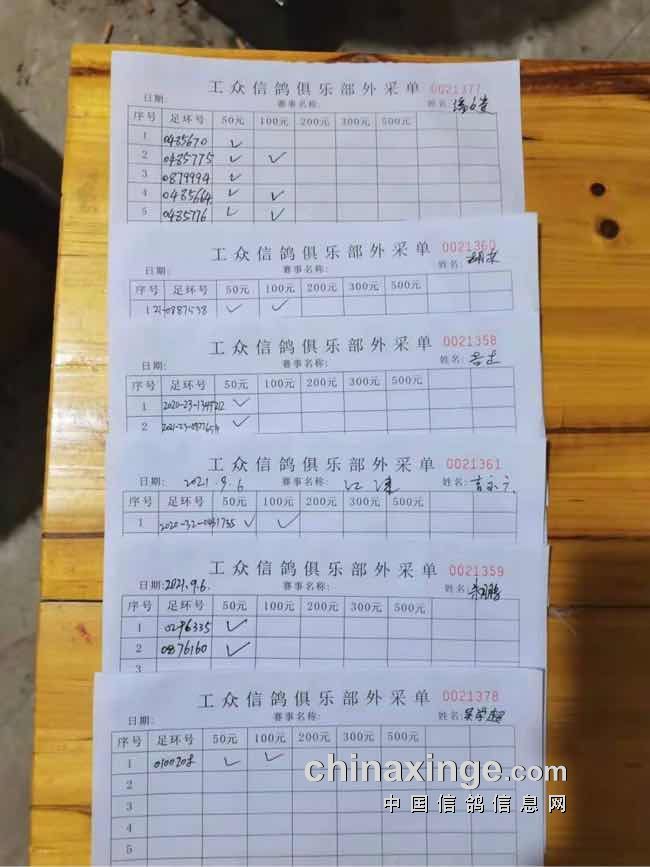 工众信鸽俱乐部外采单 0021377
日期: 赛事名称: 姓名:
序号 足环号 50元 100元 200元 300元 500元
1 0485670 ✓
2 0485775 ✓ ✓
3 0879994 ✓
4 0485664 ✓ ✓
5 0485776 ✓ ✓
工众信鸽俱乐部外采单 0021360
日期: 赛事名称: 姓名:
序号 足环号 50元 100元 200元 300元 500元
1 21-0887538 ✓ ✓
工众信鸽俱乐部外采单 0021358
日期: 赛事名称: 姓名:
序号 足环号 50元 100元 200元 300元 500元
1 ✓
2 ✓
工众信鸽俱乐部外采单 0021361
日期: 2021.9.6 赛事名称: 姓名:
序号 足环号 50元 100元 200元 300元 500元
1 ✓ ✓
工众信鸽俱乐部外采单 0021359
日期: 2021.9.6. 赛事名称: 姓名:
序号 足环号 50元 100元 200元 300元 500元
1 0296335 ✓
2 0876160 ✓
3
工众信鸽俱乐部外采单 0021378
日期: 赛事名称: 姓名:
序号 足环号 50元 100元 200元 300元 500元
1 ✓ ✓
2
3
4
5
chinaxinge.com
中国信鸽信息网